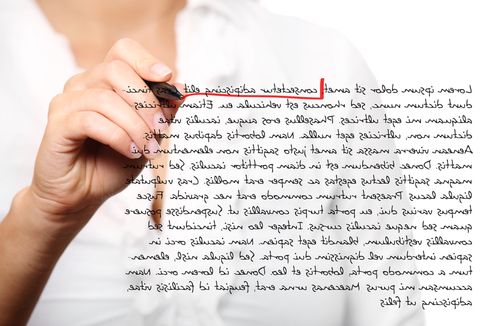 Lorem ipsum dolor sit amet, consectetur adipiscing elit. tinci-
dunt dictum nunc, sed rhoncus est vehicula eu. Etiam ultricies
aliquam mi eget ultrices. Phasellus eros augue, iaculis vitae
dictum non, ultricies eget nulla. Nam lobortis dapibus mattis.
Aenean viverra massa sit amet justo sagittis non elementum dui
mattis. Donec bibendum est in diam porttitor iaculis. Sed rutrum
magna sagittis lectus egestas ac semper erat mollis. Cras vulputate
ligula lacus. Praesent rutrum commodo erat nec gravida. Fusce
tempus varius dui, eu porta turpis convallis ut. Suspendisse posuere
quam sed neque iaculis cursus. Integer leo nisi, tincidunt sed
convallis vestibulum, blandit eget sapien. Nam iaculis orci in
sapien interdum vel dignissim dui porta. Sed ligula nisl, elemen-
tum a commodo porta, lobortis et leo. Donec id lorem orci. Nam
accumsan mi purus. Maecenas urna erat, feugiat id facilisis vitae,
adipiscing ut felis